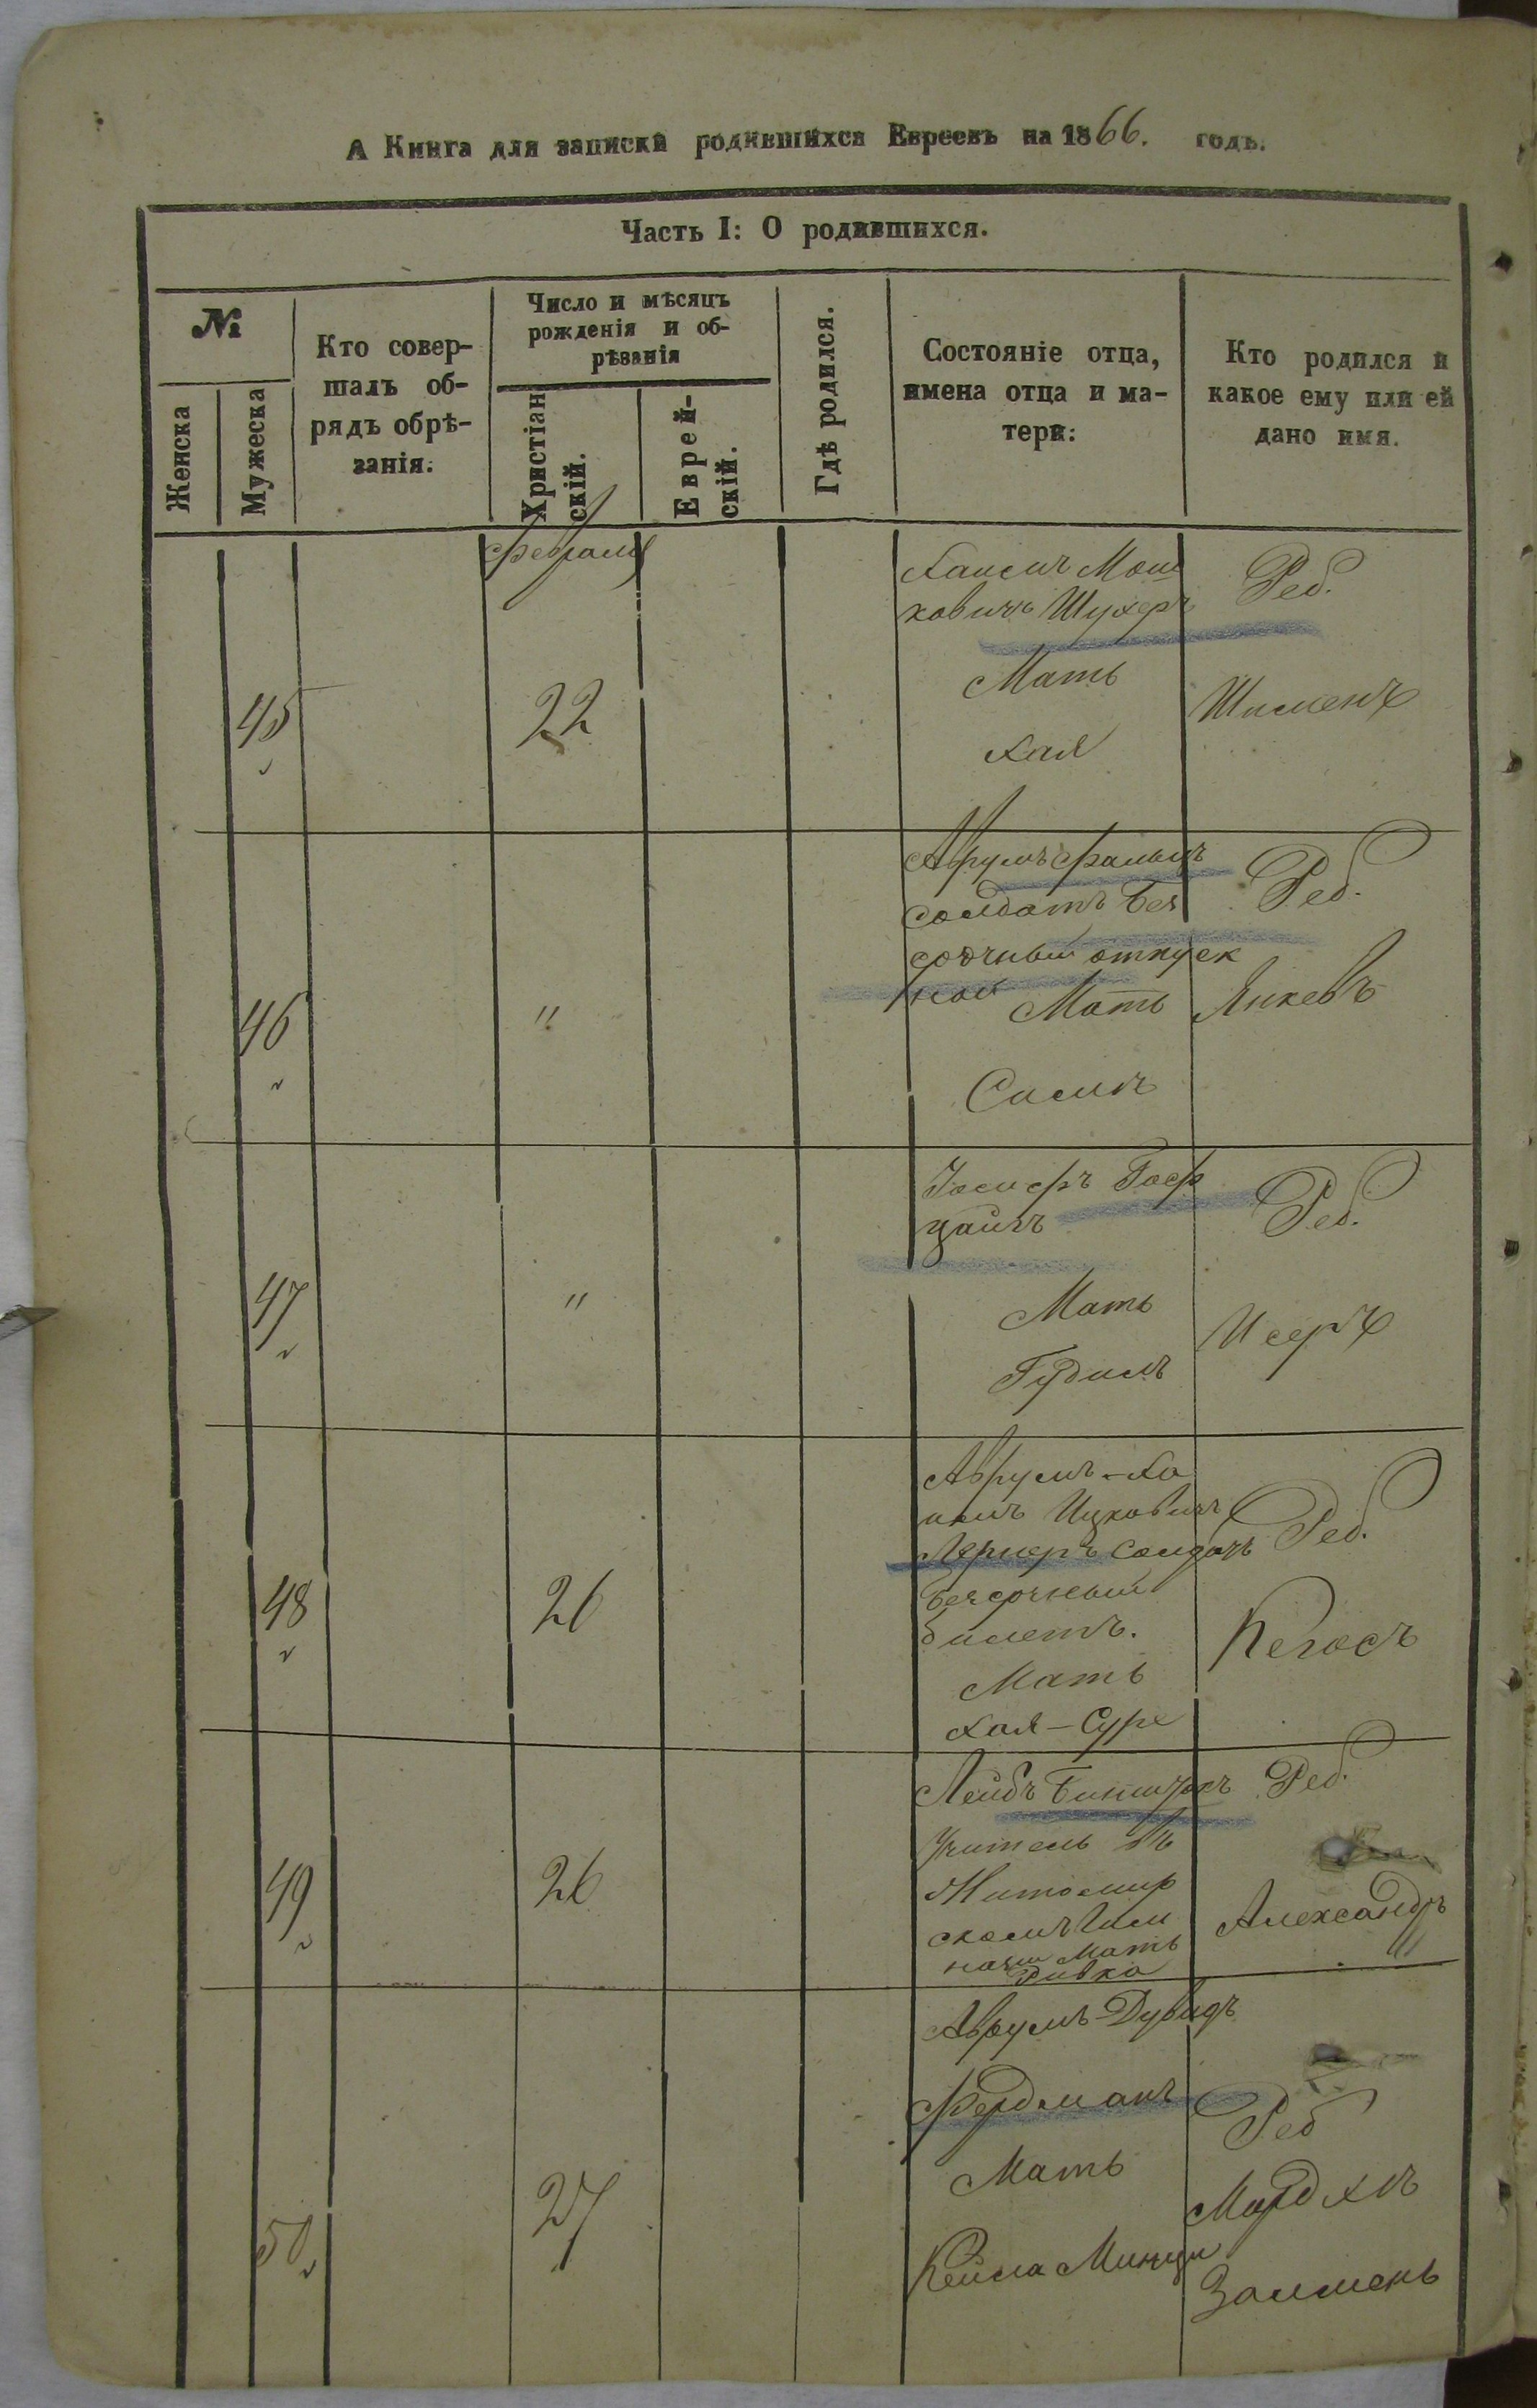 А Книга для записки родившихся Евреевъ на 1866. годъ.
Часть I: О родившихся.
№
Женска
Мужеска
Кто совер-
шалъ об-
рядъ обрѣ-
занія.
Число и мѣсяцъ
рожденія и об-
рѣзанія
Христіан
скій.
Еврей-
скій.
Гдѣ родился.
Состояніе отца,
имена отца и ма-
тери:
Кто родился и
какое ему или ей
дано имя.
Февраля
45
22
Хаимъ Мош
ковичъ Шухеръ
Мать
Хая
Реб.
Шименъ
46
"
Аврумъ
солдатъ Без
срочный отпуск
ной Мать
Симъ
Реб.
Янкевъ
47
"
Іосифъ Гоф
цаигъ
Мать
Гудимъ
Реб.
Исеръ
48
26
Аврумъ-Ха
имъ Ицковичъ
Лернеръ солдатъ
безсрочный
билетъ.
Мать
Хая-Суре
Реб.
Пегосъ
49
26
Лейбъ
Учитель въ
Житомир
скомъ Гим
назіи Мать
Ривка
Реб.
Александръ
50
27
Аврумъ-Дувидъ
Фердманъ
Мать
Кейла Минци
Реб
Мордхъ
Залменъ